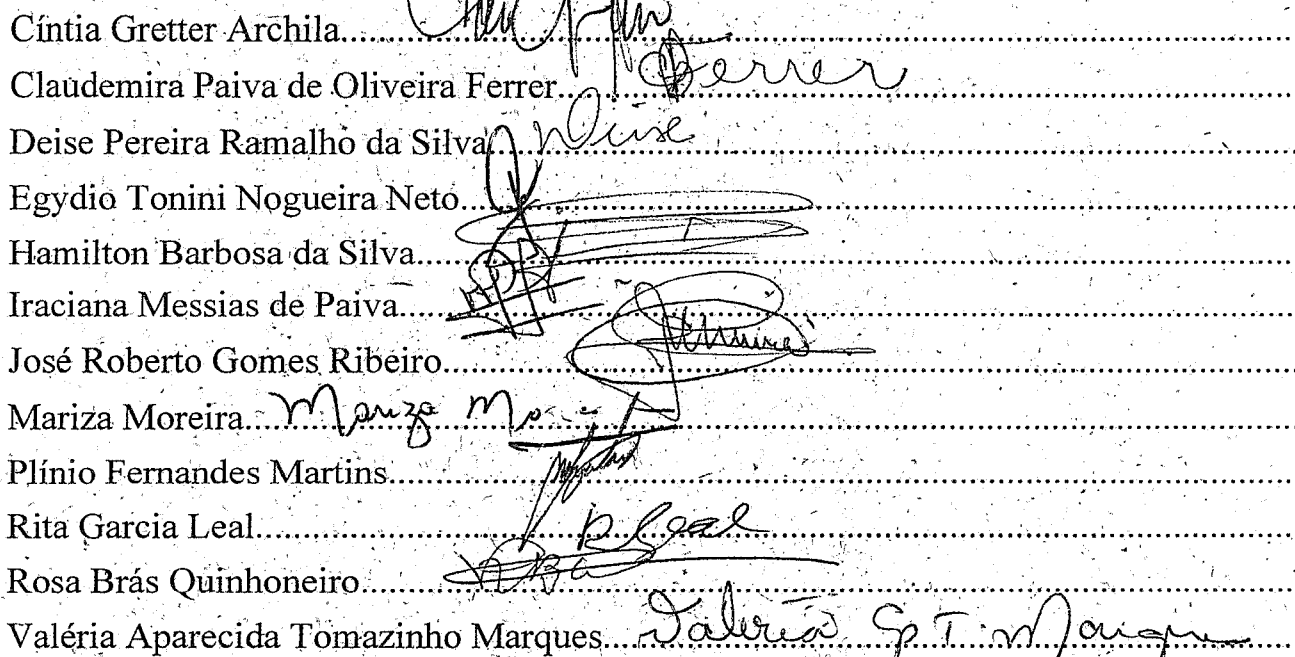 Cíntia Gretter Archila
Claudemira Paiva de Oliveira Ferrer Ferrer
Deise Pereira Ramalho da Silva Deise
Egydio Tonini Nogueira Neto
Hamilton Barbosa da Silva
Iraciana Messias de Paiva
José Roberto Gomes Ribeiro
Mariza Moreira Mariza
Plínio Fernandes Martins
Rita Garcia Leal R Leal
Rosa Brás Quinhoneiro
Valéria Aparecida Tomazinho Marques Valéria Ap. T. Marques